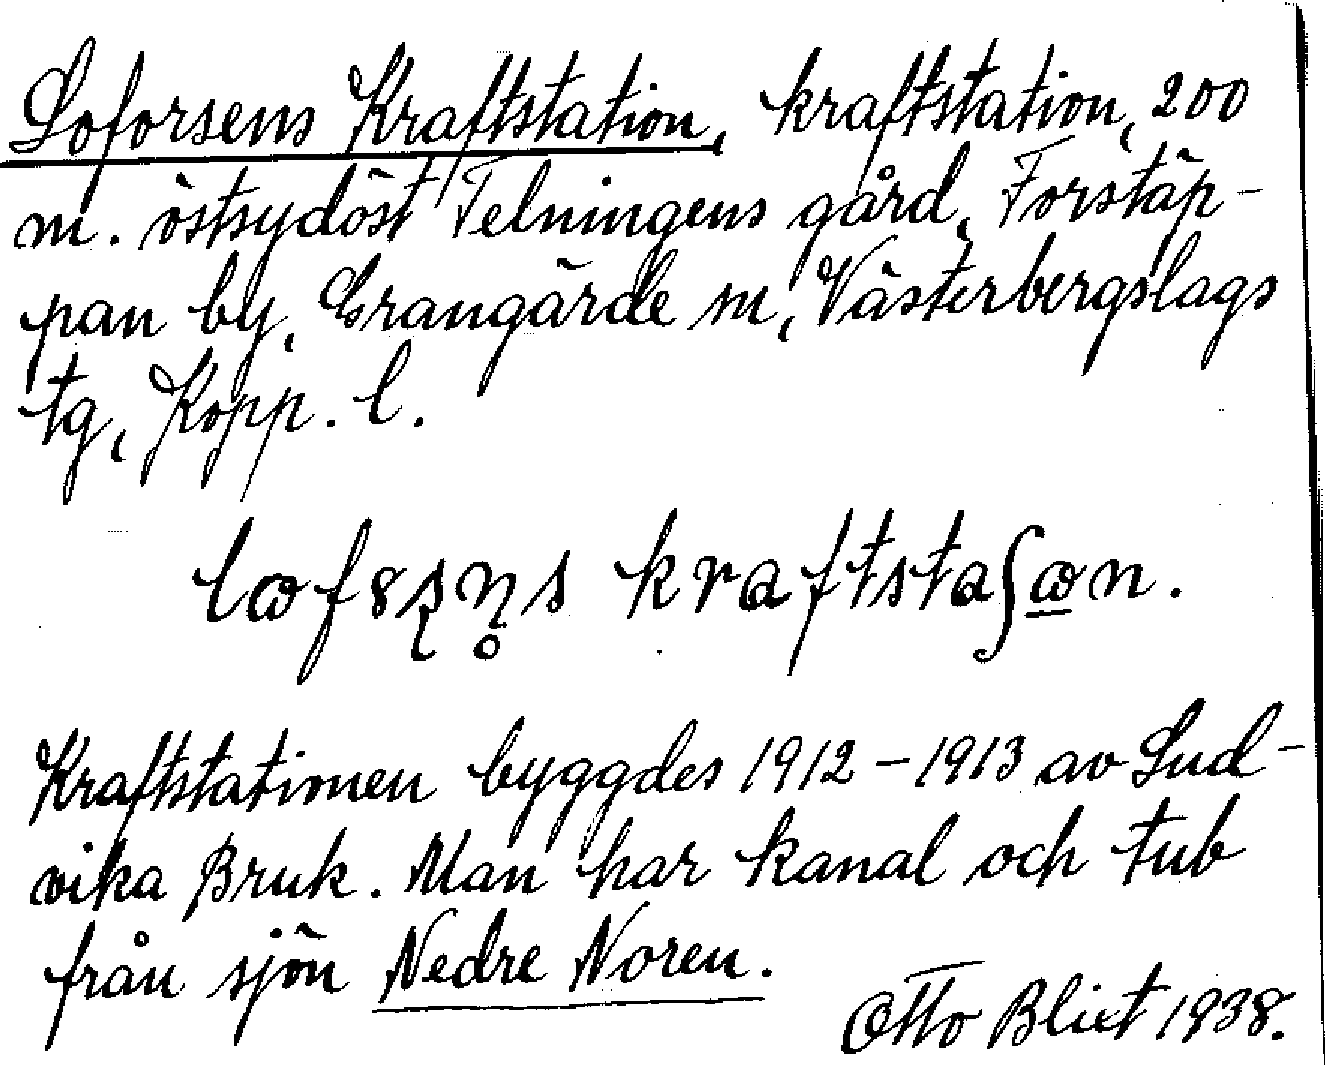 Loforsens Kraftstation, kraftstation, 200
m. östsydöst Telningens gård, Forstäp-
pan by, Grangärde sn, Västerbergslags
tg, Kopp. l.
kraftsta
Kraftstationen byggdes 1912-1913 av Lud-
vika Bruk. Man har kanal och tub
från sjön Nedre Noren.
Otto Blixt 1938.